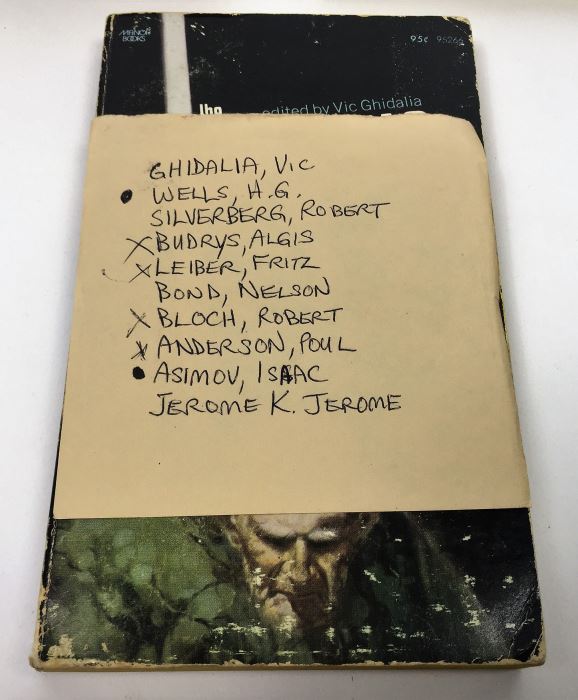 MANOR
BOOKS
95¢ 95266
The
edited by Vic Ghidalia
GHIDALIA, VIC
• WELLS, H.G.
SILVERBERG, ROBERT
X BUDRYS, ALGIS
X LEIBER, FRITZ
BOND, NELSON
X BLOCH, ROBERT
X ANDERSON, POUL
• ASIMOV, ISAAC
JEROME K. JEROME